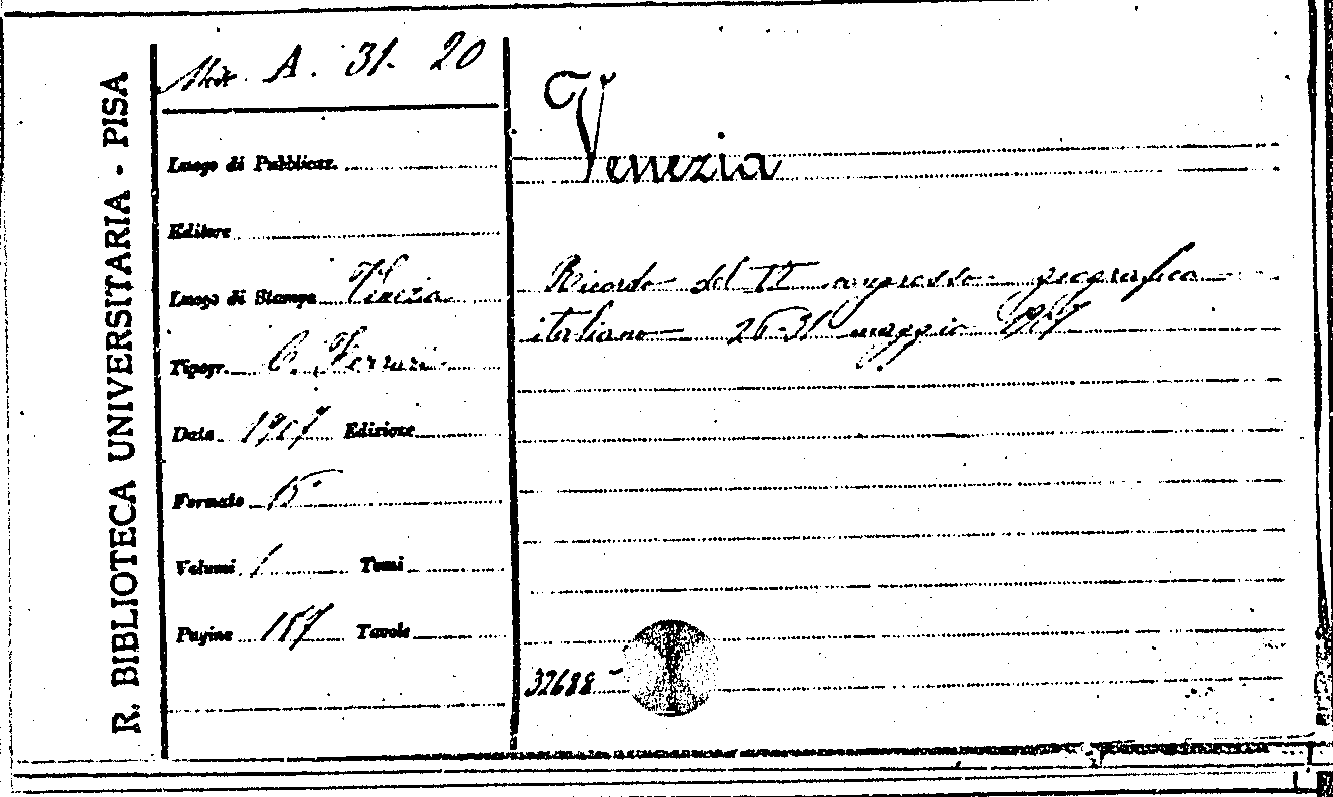 R. BIBLIOTECA UNIVERSITARIA - PISA
A. 31. 20
Luogo di Pubblicaz.
Editore
Luogo di Stampa Venezia
Tipogr. C. Ferrari
Data 1907 Edizione
Formato
Volumi 1 Tomi
Pagine 157 Tavole
Venezia
Ricordo del congresso geografico
italiano 26-31 maggio 1907
32688